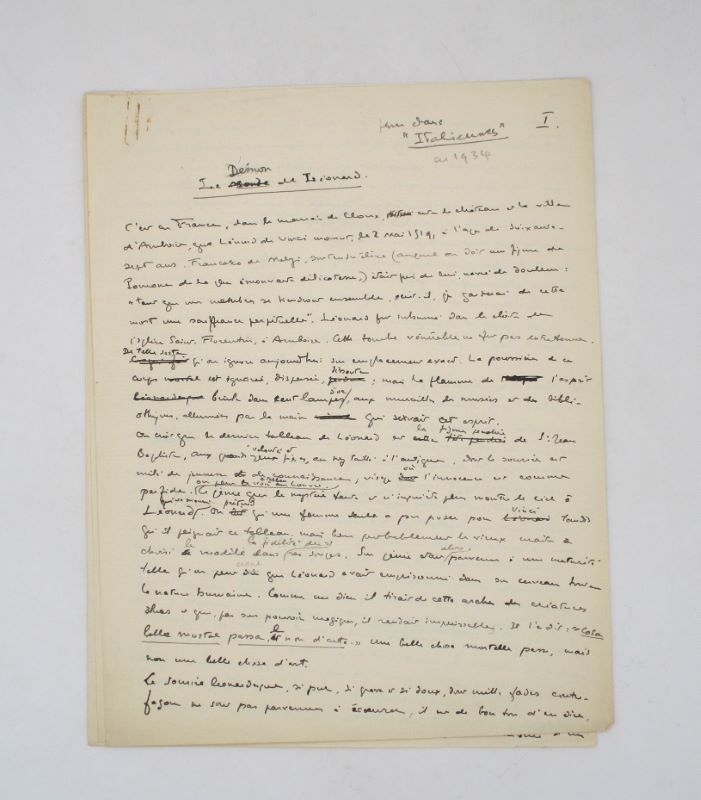 paru dans
"Italiennes"
en 1934
I.
Démon
Le de Léonard.
C'est en France, dans le manoir de Cloux, entre le château et la ville
d'Amboise, que Léonard de Vinci mourut, le 2 Mai 1519, à l'âge de soixante-
sept ans. Francesco de Melzi, son tendre élève (auquel on doit une figure de
Pomone de la plus émouvante délicatesse,) était près de lui, navré de douleur :
"tant que mes membres se tiendront ensemble, écrit-il, je garderai de cette
mort une souffrance perpétuelle". Léonard fut inhumé dans le cloître de
l'église Saint-Florentin, à Amboise. Cette tombe vénérable ne fut pas entretenue.
De telle sorte
qu'on ignore aujourd'hui son emplacement exact. La poussière de ce
dissoute
corps mortel est ignorée, dispersée, ; mais la flamme de l'esprit
d'or
brûle dans cent lampes, aux murailles des musées et des biblio-
thèques, allumées par la main qui servait cet esprit.
la figure
On croit que le dernier tableau de Léonard est de St Jean
Baptiste, aux yeux fixes, au nez taillé à l'antique, dont le sourire est
où
mêlé de jeunesse et de connaissance, visage l'innocence est comme
on peut le voir au Louvre.
perfide. Ce génie que le mystère tente et n'inquiète plus montre le ciel à
Vinci
Léonard. On qu'une femme seule a pu poser pour tandis
qu'il peignait ce tableau, mais bien probablement le vieux maître a
la fidélité de
choisi le modèle dans ses songes. Son génie était parvenu à une maturité
alors
telle qu'on peut dire que Léonard avait emprisonné dans son cerveau toute
la nature humaine. Comme un dieu il tirait de cette arche des créatures
que, par son pouvoir magique, il rendait impérissables. Il l'a dit : "Cosa
bella mortal passa, e non d'arte." Une belle chose mortelle passe, mais
non une belle chose d'art.
Le sourire léonardesque, si pur, si grave et si doux, dont mille fades contre-
façons ne sont pas parvenues à écœurer, il est de bon ton d'en dire,